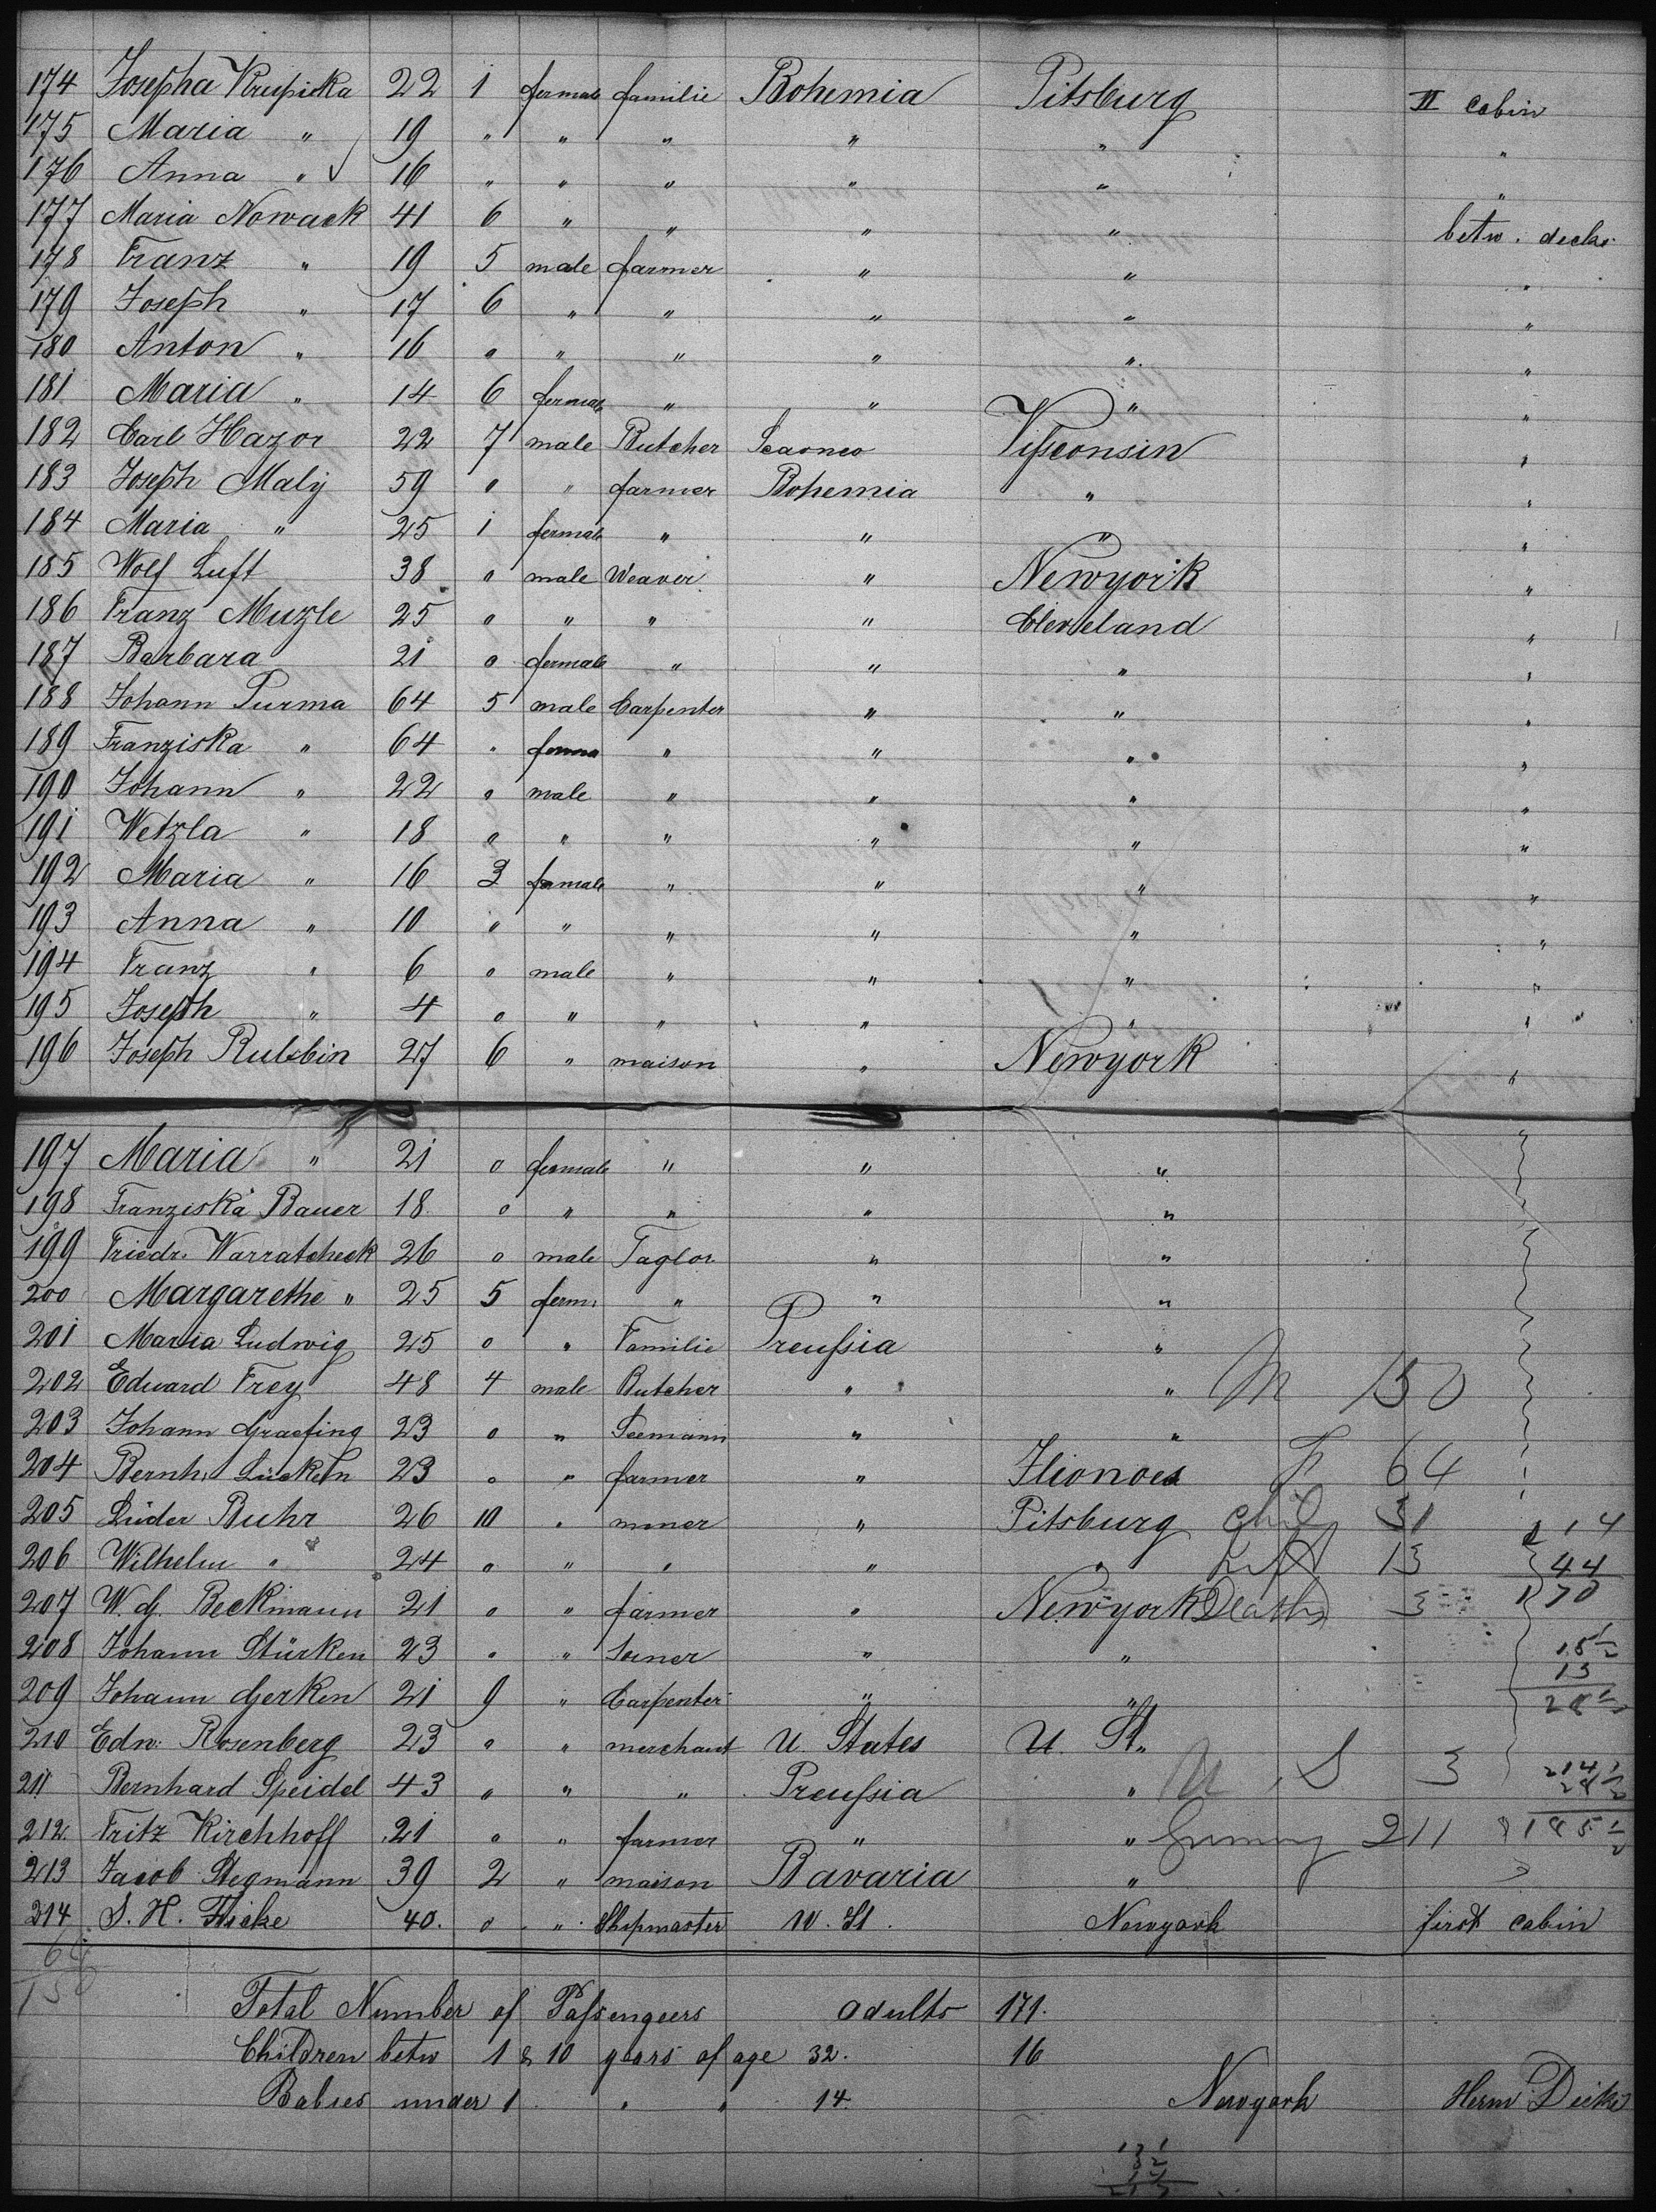 174 Josepha Krupicka 22 1 female familie Bohemia Pitsburg II cabin
175 Maria " 19 " " " " " "
176 Anna " 16 " " " " " "
177 Maria Nowack 41 6 " " " " betw. decks
178 Franz " 19 5 male farmer " " "
179 Joseph " 17 6 " " " " "
180 Anton " 16 " " " " " "
181 Maria " 14 6 female " " " "
182 Carl Hazor 22 7 male Butcher Visconsin "
183 Joseph Malij 59 " " farmer Bohemia " "
184 Maria " 25 1 female " " " "
185 Wolf Luft 38 " male Weaver " Newyork "
186 Franz Muzle 25 " " " " Cleveland "
187 Barbara 21 " female " " " "
188 Johann Purma 64 5 male Carpenter " " "
189 Franziska " 64 " " " " "
190 Johann " 22 " male " " " "
191 Wetzla " 18 " " " " " "
192 Maria " 16 3 female " " " "
193 Anna " 10 " " " " " "
194 Franz " 6 " male " " " "
195 Joseph " 4 " " " " " "
196 Joseph Rulsbin 27 6 " maison " Newyork "
197 Maria " 21 " female " " "
198 Franziska Bauer 18 " " " " "
199 Friedr. Warratcheck 26 " male Taglor " "
200 Margarethe " 25 5 fem. " " "
201 Maria Ludwig 25 " " Familie Preussia "
202 Eduard Frey 48 4 male Butcher " " M 150
203 Johann Graefing 23 " " Seemann " "
204 Bernh. Lücken 23 " " farmer " Ilionoes F 64
205 Lüder Buhr 26 10 " mner " Pitsburg Chil 31 14
206 Wilhelm " 24 " " " " " 13 44
207 W. G. Beckmann 21 " " farmer " Newyork Deaths 3 170
208 Johann Stürken 23 " " Soiner " " 15½
13
209 Johann Gerken 21 9 " Carpenter " " 28½
210 Edw. Rosenberg 23 " " merchant U. States U. St.
211 Bernhard Speidel 43 " " " Preussia " U. S 3 214½
28½
212 Fritz Kirchhoff 21 " " farmer " " Germany 211 185½
213 Jacob Stegmann 39 2 " maison Bavaria "
214 S. H. Fricke 40. " " Shipmaster U. St. Newyork first cabin
64
150
Total Number of Passengeers adults 171.
Children betw 1 & 10 years of age 32. 16
Babies under 1 " " 14. Newyork Herm Dicke